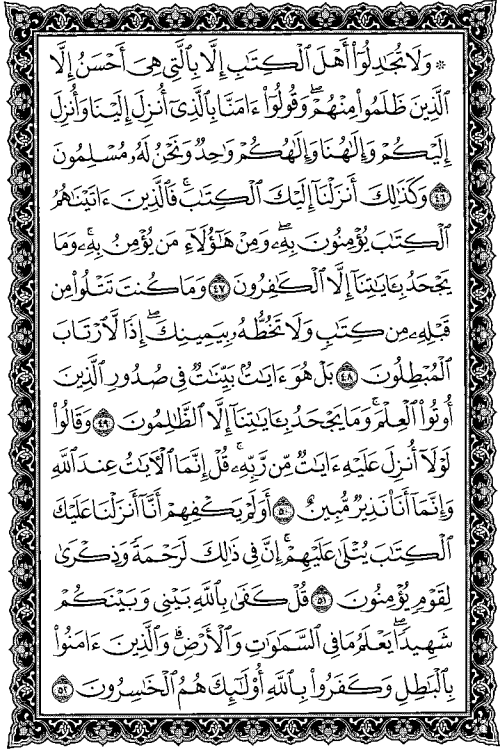 ۞ وَلَا تُجَٰدِلُوٓا۟ أَهْلَ ٱلْكِتَٰبِ إِلَّا بِٱلَّتِى هِىَ أَحْسَنُ إِلَّا
ٱلَّذِينَ ظَلَمُوا۟ مِنْهُمْ ۖ وَقُولُوٓا۟ ءَامَنَّا بِٱلَّذِىٓ أُنزِلَ إِلَيْنَا وَأُنزِلَ
إِلَيْكُمْ وَإِلَٰهُنَا وَإِلَٰهُكُمْ وَٰحِدٌ وَنَحْنُ لَهُۥ مُسْلِمُونَ
﴿٤٦﴾ وَكَذَٰلِكَ أَنزَلْنَآ إِلَيْكَ ٱلْكِتَٰبَ ۚ فَٱلَّذِينَ ءَاتَيْنَٰهُمُ
ٱلْكِتَٰبَ يُؤْمِنُونَ بِهِۦ ۖ وَمِنْ هَٰٓؤُلَآءِ مَن يُؤْمِنُ بِهِۦ ۚ وَمَا
يَجْحَدُ بِـَٔايَٰتِنَآ إِلَّا ٱلْكَٰفِرُونَ ﴿٤٧﴾ وَمَا كُنتَ تَتْلُوا۟ مِن
قَبْلِهِۦ مِن كِتَٰبٍ وَلَا تَخُطُّهُۥ بِيَمِينِكَ ۖ إِذًا لَّٱرْتَابَ
ٱلْمُبْطِلُونَ ﴿٤٨﴾ بَلْ هُوَ ءَايَٰتٌۢ بَيِّنَٰتٌ فِى صُدُورِ ٱلَّذِينَ
أُوتُوا۟ ٱلْعِلْمَ ۚ وَمَا يَجْحَدُ بِـَٔايَٰتِنَآ إِلَّا ٱلظَّٰلِمُونَ ﴿٤٩﴾ وَقَالُوا۟
لَوْلَآ أُنزِلَ عَلَيْهِ ءَايَٰتٌ مِّن رَّبِّهِۦ ۖ قُلْ إِنَّمَا ٱلْءَايَٰتُ عِندَ ٱللَّهِ
وَإِنَّمَآ أَنَا۠ نَذِيرٌ مُّبِينٌ ﴿٥٠﴾ أَوَلَمْ يَكْفِهِمْ أَنَّآ أَنزَلْنَا عَلَيْكَ
ٱلْكِتَٰبَ يُتْلَىٰ عَلَيْهِمْ ۚ إِنَّ فِى ذَٰلِكَ لَرَحْمَةً وَذِكْرَىٰ
لِقَوْمٍ يُؤْمِنُونَ ﴿٥١﴾ قُلْ كَفَىٰ بِٱللَّهِ بَيْنِى وَبَيْنَكُمْ
شَهِيدًا ۖ يَعْلَمُ مَا فِى ٱلسَّمَٰوَٰتِ وَٱلْأَرْضِ ۗ وَٱلَّذِينَ ءَامَنُوا۟
بِٱلْبَٰطِلِ وَكَفَرُوا۟ بِٱللَّهِ أُو۟لَٰٓئِكَ هُمُ ٱلْخَٰسِرُونَ ﴿٥٢﴾